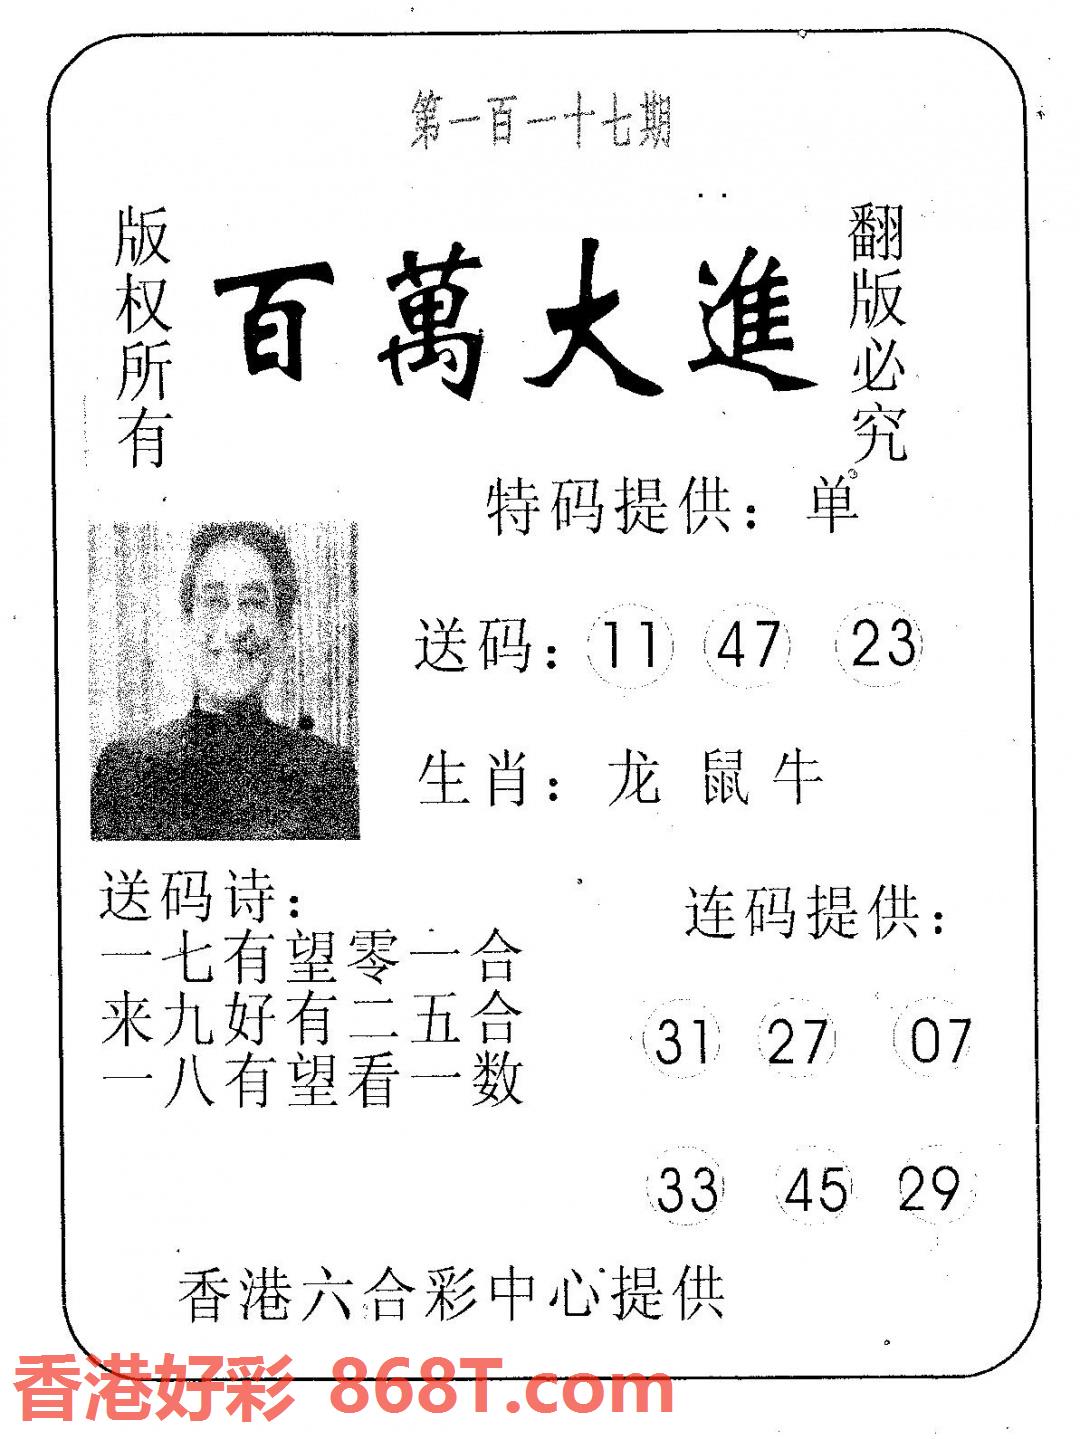 第一百一十七期
版权所有
百萬大進
翻版必究
特码提供：单
送码：11 47 23
生肖：龙 鼠 牛
送码诗：
一七有望零一合
来九好有二五合
一八有望看一数
连码提供：
31 27 07
33 45 29
香港六合彩中心提供
香港好彩 868T.com